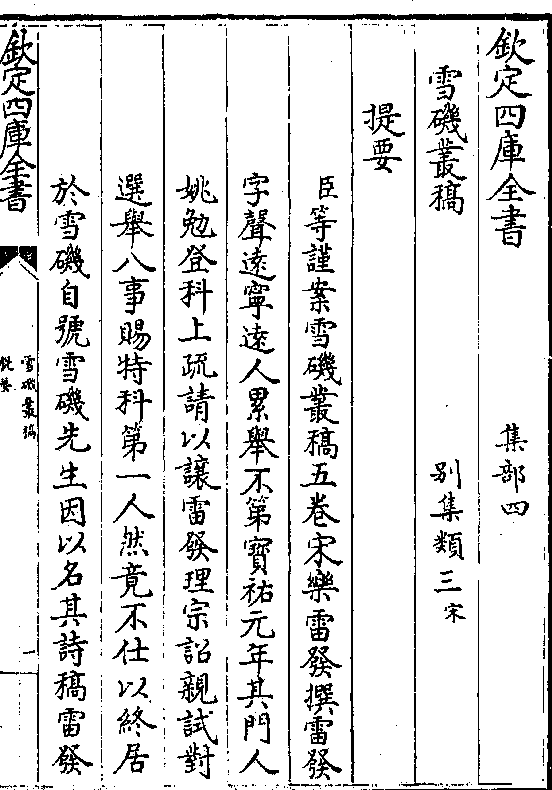 欽定四庫全書 集部四
雪磯叢稿 别集類三宋
提要
臣等謹案雪磯叢稿五卷宋樂雷發撰雷發
字聲遠寧遠人累舉不第寳祐元年其門人
姚勉登科上疏請以讓雷發理宗詔親試對
選舉八事賜特科第一人然竟不仕以終居
於雪磯自號雪磯先生因以名其詩稿雷發
欽定四庫全書
雪磯叢稿
提要
一